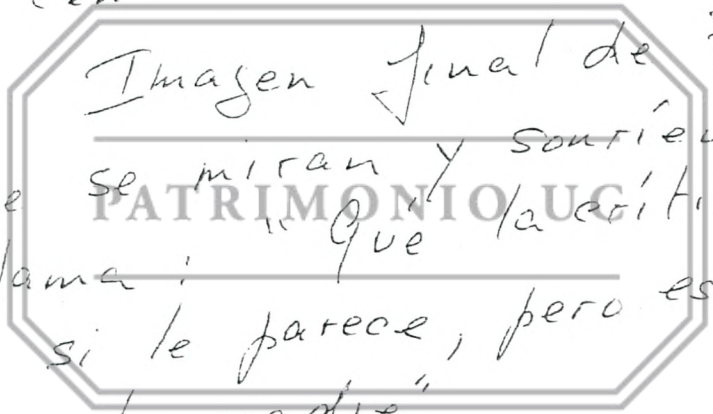 Imagen final de
se miran y sonríen
PATRIMONIO UC
"Que la críti
lama:
si le parece, pero es